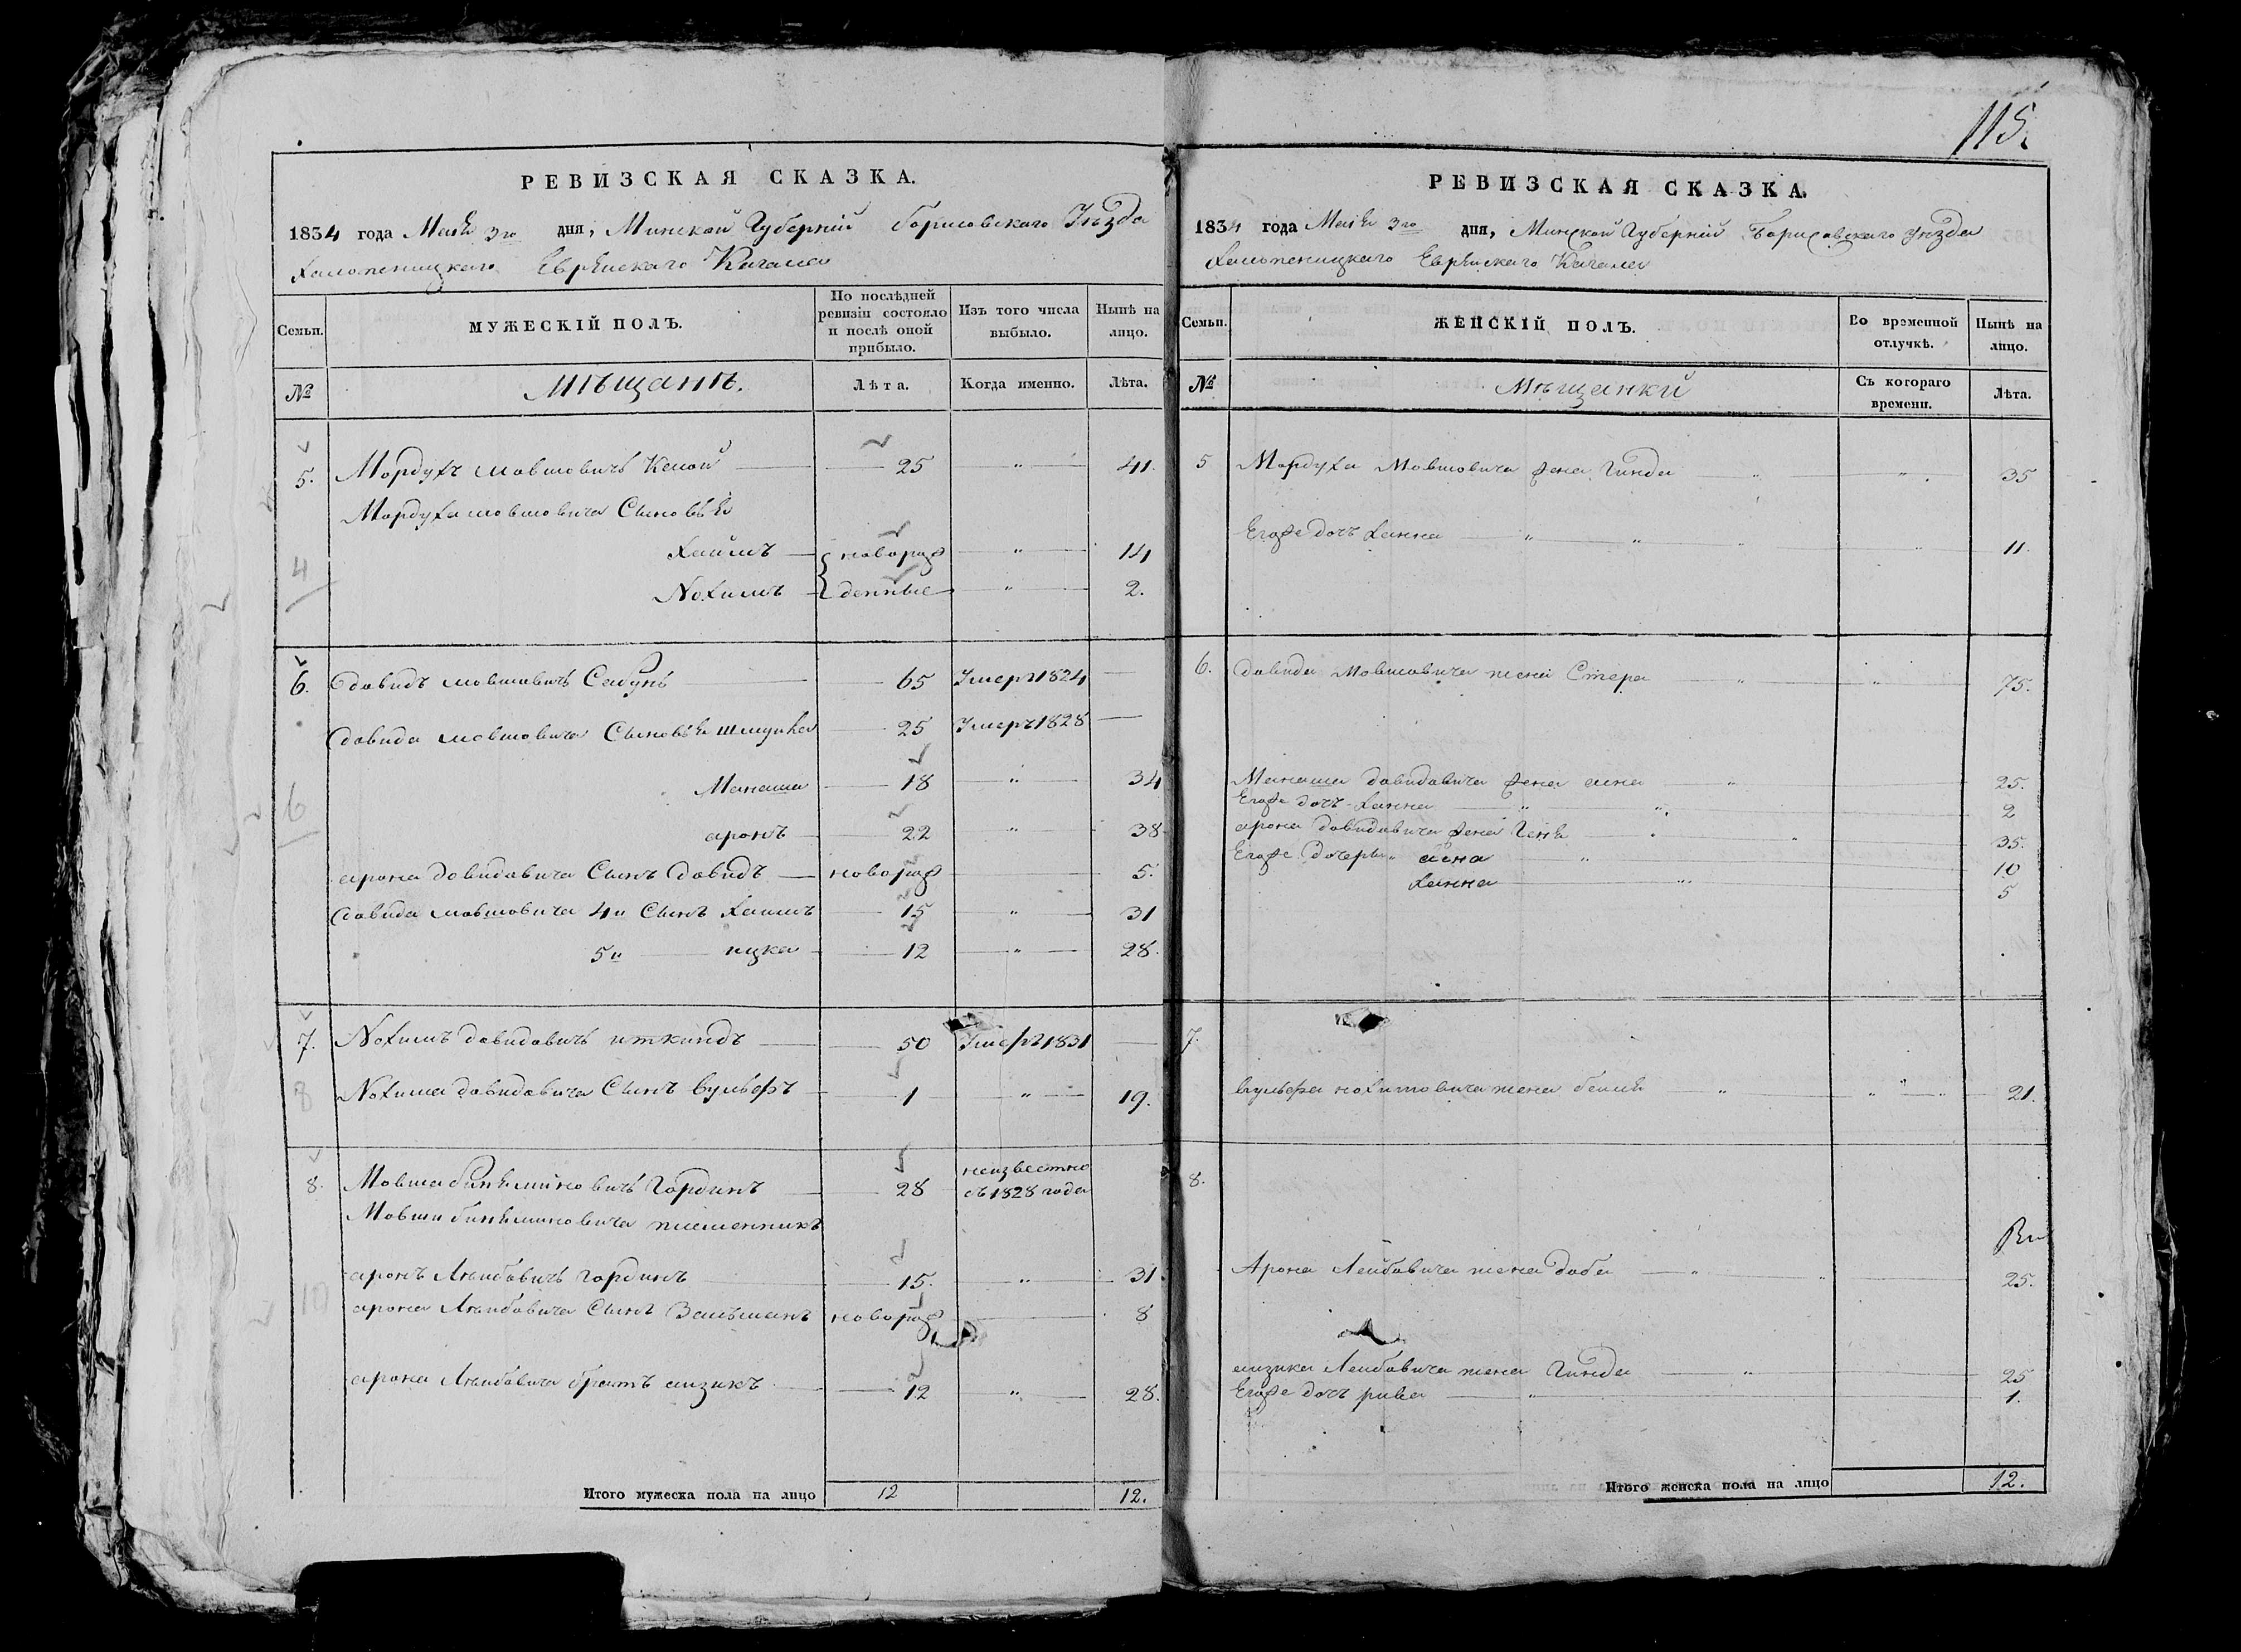 115.
РЕВИЗСКАЯ СКАЗКА.
1834 года Маія 3го дня, Минской Губерніи Борисовскаго Уѣзда
Холопеницкаго Еврейскаго Кагала
Семьи. МУЖЕСКІЙ ПОЛЪ. По послѣдней ревизіи состояло и послѣ оной прибыло. Изъ того числа выбыло. Нынѣ на лицо.
№ Мѣщанъ. Лѣта. Когда именно. Лѣта.
5. Мордухъ Мовшовичъ 25 " 41.
Мордуха Мовшовича Сыновья
Хаимъ новорож 14
4 Нохимъ денные " 2.
6. Давидъ Мовшовичъ 65 Умеръ 1824
Давида Мовшовича Сыновья Шмуйла 25 Умеръ 1828
Манаша 18 " 34
6 аронъ 22 " 38
арона Давидовича Сынъ Давидъ новорож 5.
Давида Мовшовича 4й Сынъ Хаимъ 15 " 31
5й ицка 12 " 28.
7. Нохимъ Давидовичъ иткиндъ 50 Умеръ 1831
8 Нохима Давидовича Сынъ Вульфъ 1 " 19.
8. Мовша Биняминовичъ Гординъ 28 неизвестно съ 1828 года
Мовши Биняминовича племенникъ
аронъ Лейбовичъ Гординъ 15. " 31.
10 арона Лейбовича Сынъ Залманъ новорож 8
арона Лейбовича братъ аизикъ 12 " 28.
Итого мужеска пола на лицо 12 12.
РЕВИЗСКАЯ СКАЗКА.
1834 года Маія 3го дня, Минской Губерніи Борисовскаго Уѣзда
Холопеницкаго Еврейскаго Кагала
Семьи. ЖЕНСКІЙ ПОЛЪ. Во временной отлучкѣ. Нынѣ на лицо.
№ Мѣщанки Съ котораго времени. Лѣта.
5 Мордуха Мовшовича жена Гинда " " 35
Егоже дочь Ханна " " " " 11.
6. Давида Мовшовича жена Стера " " 75.
Манаша Давидовича жена сина " 25.
Егоже дочь Ханна " " 2
арона Давидовича жена Геня " " 35.
Егоже дочери " 10
Ханна " 5
7.
Вульфа нохимовича жена беиля " " " 21.
8.
Арона Лейбовича жена доба " " 25.
аизика Лейбовича жена Гинда " 25
Егоже дочь рива " 1.
Итого женска пола на лицо 12.